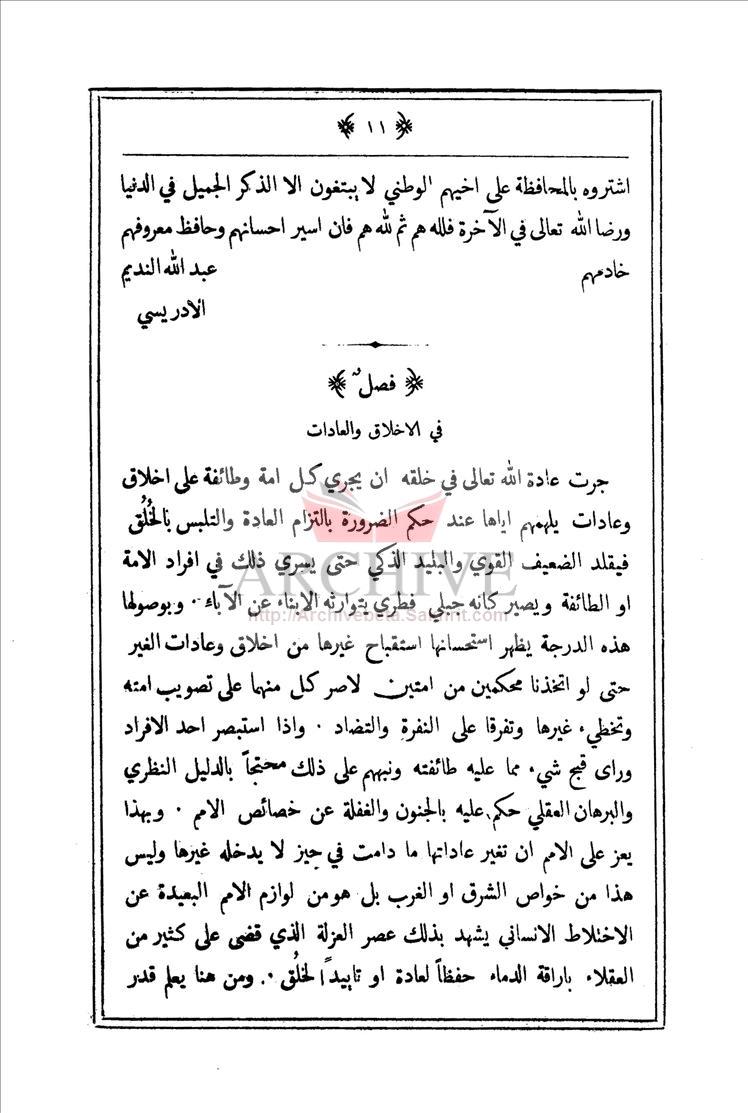 ﴿ ١١ ﴾
اشتروه بالمحافظة على اخيهم الوطني لا يبتغون الا الذكر الجميل في الدنيا
ورضا الله تعالى في الآخرة فلله هم ثم لله هم فان اسير احسانهم وحافظ معروفهم
خادمهم عبد الله النديم
الادريسي
﴿ فصلٌ ﴾
في الاخلاق والعادات
جرت عادة الله تعالى في خلقه ان يجري كل امة وطائفة على اخلاق
وعادات يلهمهم اياها عند حكم الضرورة بالتزام العادة والتلبس بالخُلُق
فيقلد الضعيف القوي والبليد الذكي حتى يسري ذلك في افراد الامة
او الطائفة ويصير كانه جبلي فطري يتوارثه الابناء عن الآباء . وبوصولها
هذه الدرجة يظهر استحسانها استقباح غيرها من اخلاق وعادات الغير
حتى لو اتخذنا محكمين من امتين لاصر كل منهما على تصويب امته
وتخطيء غيرها وتفرقا على النفرة والتضاد . واذا استبصر احد الافراد
وراى قبح شيء مما عليه طائفته ونبههم على ذلك محتجاً بالدليل النظري
والبرهان العقلي حكم عليه بالجنون والغفلة عن خصائص الامم . وبهذا
يعز على الامم ان تغير عاداتها ما دامت في حيز لا يدخله غيرها وليس
هذا من خواص الشرق او الغرب بل هو من لوازم الامم البعيدة عن
الاختلاط الانساني يشهد بذلك عصر العزلة الذي قضى على كثير من
العقلاء باراقة الدماء حفظاً لعادة او تاييداً لخُلُق . ومن هنا يعلم قدر
ARCHIVE
http://Archivebeta.Sakhrit.com